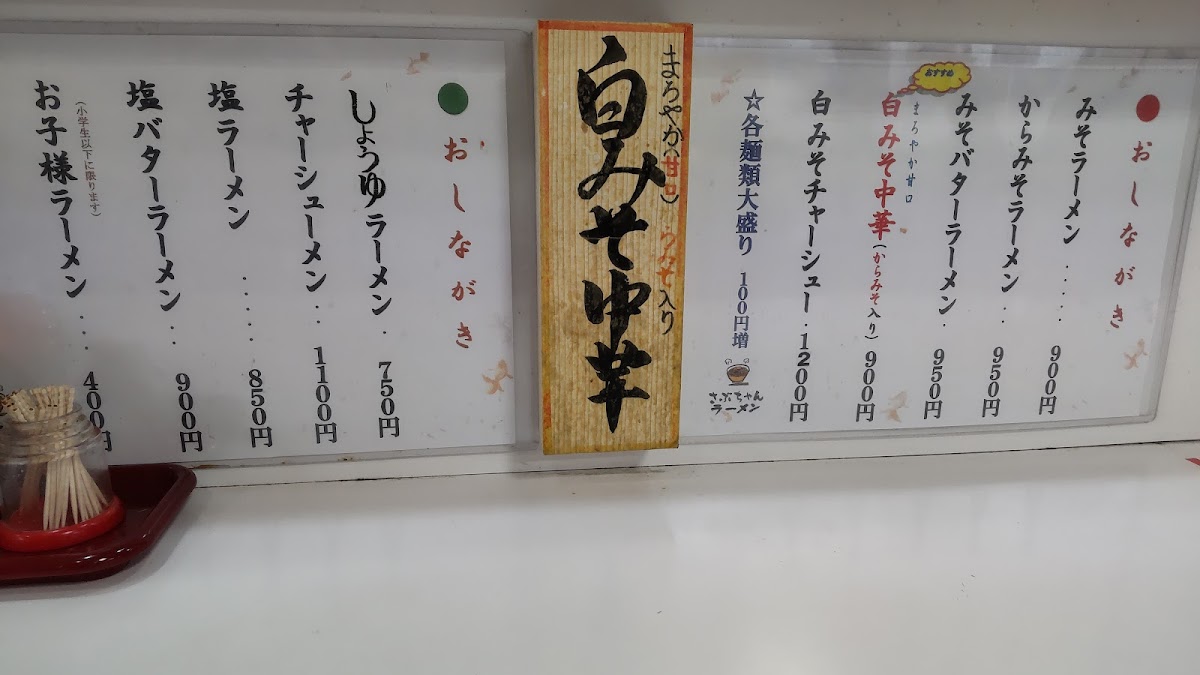 おしながき
みそラーメン ‥‥ 900円
からみそラーメン ‥ 950円
みそバターラーメン ・ 950円
おすすめ
まろやか甘口
白みそ中華(からみそ入り) 900円
白みそチャーシュー ・ 1200円
☆各麺類大盛り 100円増
さぶちゃん
ラーメン
まろやか(甘口)からみそ入り
白みそ中華
おしながき
しょうゆラーメン ・ 750円
チャーシューメン ‥ 1100円
塩ラーメン ‥‥‥ 850円
塩バターラーメン ‥ 900円
(小学生以下に限ります)
お子様ラーメン ‥‥ 400円